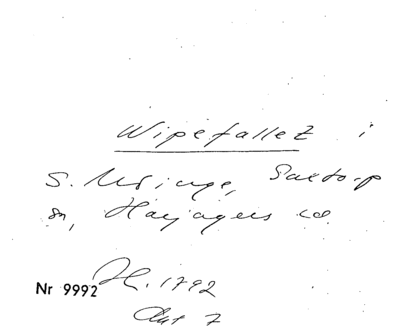 Wipefallet i
S. Möinge, Saxtorp
sn, Harjagers hd.
Nr 9992 H. 1792
Akt 7